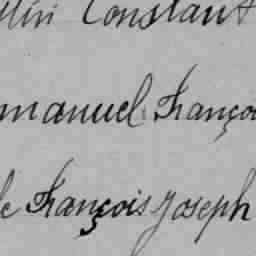 Constant
manuel Franço
François Joseph